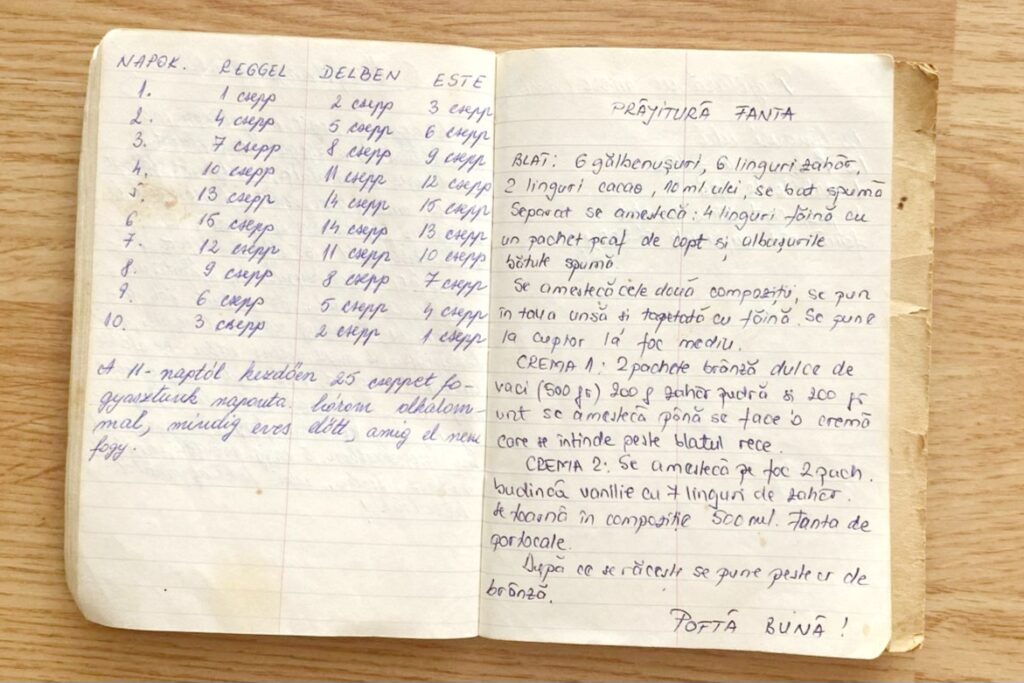 NAPOK. REGGEL DELBEN ESTE
1. 1 csepp 2 csepp 3 csepp
2. 4 csepp 5 csepp 6 csepp
3. 7 csepp 8 csepp 9 csepp
4. 10 csepp 11 csepp 12 csepp
5. 13 csepp 14 csepp 15 csepp
6. 15 csepp 14 csepp 13 csepp
7. 12 csepp 11 csepp 10 csepp
8. 9 csepp 8 csepp 7 csepp
9. 6 csepp 5 csepp 4 csepp
10. 3 csepp 2 csepp 1 csepp
A 11- naptól kezdően 25 cseppet fo-
gyasztunk naponta három alkalom-
mal, mindig evés előtt, amíg el nem
fogy.
PRĂJITURĂ FANTA
BLAT: 6 gălbenușuri, 6 linguri zahăr,
2 linguri cacao, 10 ml. ulei, se bat spumă
Separat se amestecă: 4 linguri făină cu
un pachet praf de copt și albușurile
bătute spumă.
Se amestecă cele două compoziții, se pun
în tava unsă și tapetată cu făină. Se pune
la cuptor la foc mediu.
CREMA 1: 2 pachete brânză dulce de
vaci (500 gr) 200 g zahăr pudră și 200 gr
unt se amestecă până se face o cremă
care se întinde peste blatul rece.
CREMA 2: Se amestecă pe foc 2 pach.
budincă vanilie cu 7 linguri de zahăr.
Se toarnă în compoziție 500 ml. Fanta de
portocale.
După ce se răcește se pune peste cr de
brânză.
POFTĂ BUNĂ!